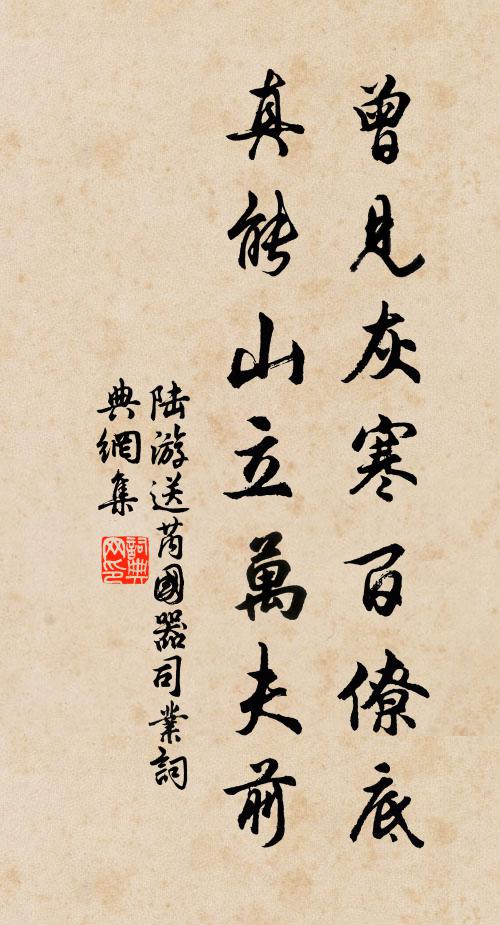 曾見灰寒百僚底
真能山立萬夫前
陸游送芮國器司業詞
典網集
詞典
网印